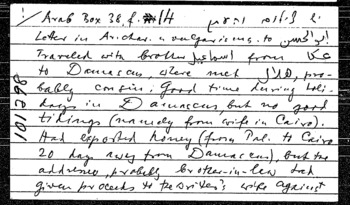 Arab Box 38 f. 14
Letter in Ar. char. & vulgarisms. to
Traveled with brother اسماعيل from عكا
to Damascus, where met هلال, pro-
bably cousin. Good time during holi-
days in Damascus but no good
tidings (namely from wife in Cairo).
Had exported honey (from Pal. to Cairo
20 days away from Damascus), but the
addressee, probably brother-in-law had
given proceeds to the writer's wife against